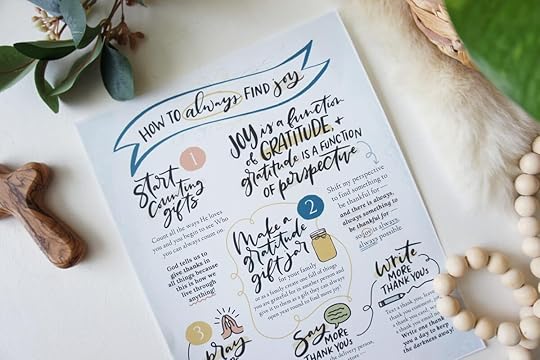 HOW TO always FIND joy
JOY is a function
of GRATITUDE, +
gratitude IS A FUNCTION
of perspective
1
Start
counting
gifts
Count all the ways He loves
you and you begin to see Who
you can always count on.
God tells us to
give thanks in
all things because
this is how we
live through
anything
2
Make a
gratitude
gift jar
for your family
or as a family create one full of things
you are grateful for in another person and
give it to them as a gift they can always
open year round to find more joy!
Shift my perspective
to find something to
be thankful for
and there is always,
always something to
be thankful for
is always,
always possible.
3
pray
Say
MORE
THANK YOUS
delivery person,
Write
MORE
THANK YOUS
Text a thank you, leave
a thank you, email
a thank you
Write one thank
you a day to keep
the darkness away.